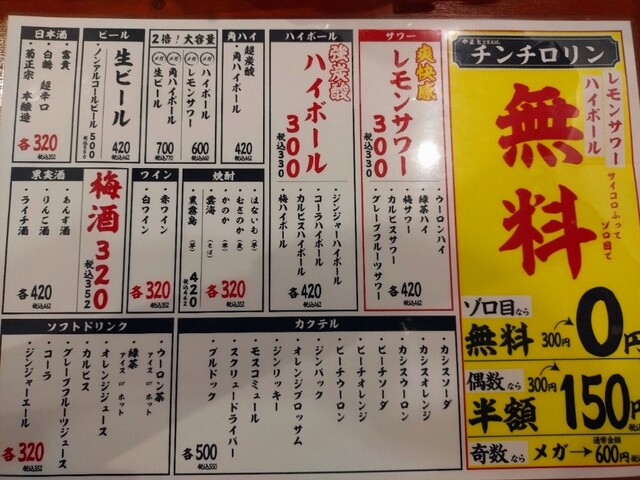 やまと
チンチロリン
レモンサワー
ハイボール
無料
サイコロふって
ゾロ目で
ゾロ目なら
無料
300円
0円
偶数なら
半額
300円
150円
奇数なら
メガ→
通常金額
600円
サワー
爽快感
レモンサワー
300
税込330
・ウーロンハイ
・緑茶ハイ
・梅サワー
・カルピスサワー
・グレープフルーツサワー
各420
税込462
ハイボール
強炭酸
ハイボール
300
税込330
・ジンジャーハイボール
・コーラハイボール
・カルピスハイボール
・梅ハイボール
各420
税込462
角ハイ
超炭酸
・角ハイボール
420
税込462
2倍!大容量
メガ ハイボール
メガ レモンサワー
600
税込660
メガ 角ハイボール
メガ 生ビール
700
税込770
ビール
生ビール
420
税込462
・ノンアルコールビール
500
税込550
日本酒
・富貴
・白鶴 超辛口
・菊正宗 本醸造
各320
税込352
焼酎
・はないも(芋)
・むぎのか(麦)
・かのか(米)
各320
税込352
・雲海(そば)
・黒霧島(芋)
各420
税込462
ワイン
・赤ワイン
・白ワイン
各320
税込352
果実酒
梅酒
320
税込352
・あんず酒
・りんご酒
・ライチ酒
各420
税込462
カクテル
・カシスソーダ
・カシスオレンジ
・カシスウーロン
・ピーチソーダ
・ピーチオレンジ
・ピーチウーロン
・ジンバック
・オレンジブロッサム
・ジンリッキー
・モスコミュール
・スクリュードライバー
・ブルドック
各500
税込550
ソフトドリンク
・ウーロン茶
アイス or ホット
・緑茶
アイス or ホット
・オレンジジュース
・カルピス
・グレープフルーツジュース
・コーラ
・ジンジャーエール
各320
税込352